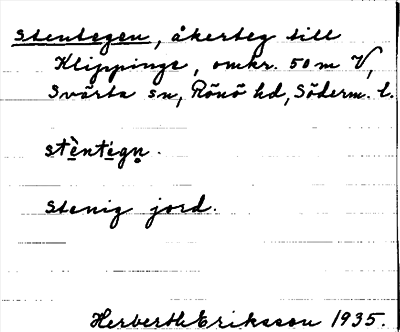 Stentegen, åkerteg till
Klippinge, omkr. 50 m V,
Svärta sn, Rönö hd, Söderm. l.
stèntegn.
Stenig jord.
Herberth Eriksson 1935.